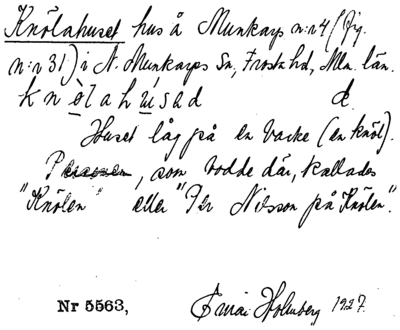 Knölahuset hus å Munkarp n:r 4 (fig.
n:r 31) i N. Munkarps Sn, Frosta hd, Mlm. län.
knölahúsed d.
Huset låg på en backe (en knöl).
Personen, som bodde där, kallades
"Knölen" eller "Per Nilsson på Knölen".
Nr 5563, Holmberg 1927.